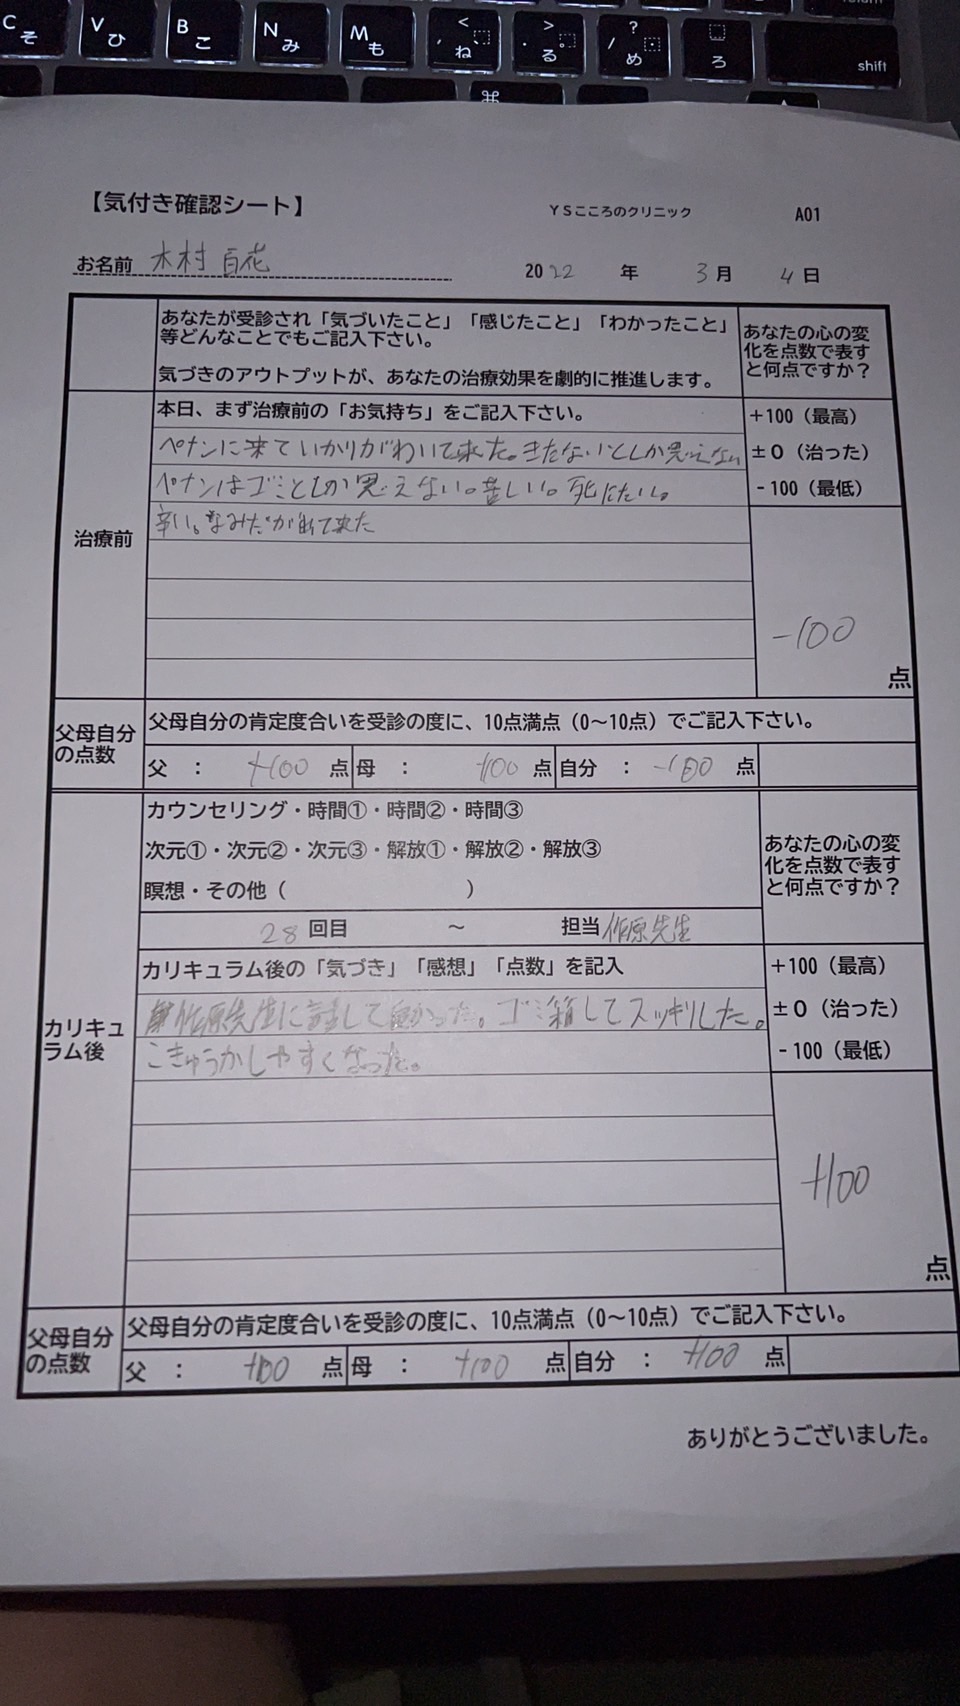 C そ V ひ B こ N み M も < , ね > . る ? / め ろ shift
⌘
【気付き確認シート】 YSこころのクリニック A01
お名前 木村 百花 2022 年 3月 4日
あなたが受診され「気づいたこと」「感じたこと」「わかったこと」
等どんなことでもご記入下さい。
気づきのアウトプットが、あなたの治療効果を劇的に推進します。
あなたの心の変
化を点数で表す
と何点ですか？
治療前
本日、まず治療前の「お気持ち」をご記入下さい。
ペナンに来ていかりがわいて来た。きたないとしか思えない
ペナンはゴミとしか思えない。苦しい。死にたい。
辛い。なみだが出て来た
+100（最高）
±0（治った）
-100（最低）
-100
点
父母自分
の点数
父母自分の肯定度合いを受診の度に、10点満点（0～10点）でご記入下さい。
父 ： +100 点 母 ： +100 点 自分 ： -100 点
カリキュ
ラム後
カウンセリング・時間①・時間②・時間③
次元①・次元②・次元③・解放①・解放②・解放③
瞑想・その他（ ）
28 回目 ～ 担当 作原先生
あなたの心の変
化を点数で表す
と何点ですか？
カリキュラム後の「気づき」「感想」「点数」を記入
作原先生に話して良かった。ゴミ箱してスッキリした。
こきゅうがしやすくなった。
+100（最高）
±0（治った）
-100（最低）
+100
点
父母自分
の点数
父母自分の肯定度合いを受診の度に、10点満点（0～10点）でご記入下さい。
父 ： +100 点 母 ： +100 点 自分 ： +100 点
ありがとうございました。